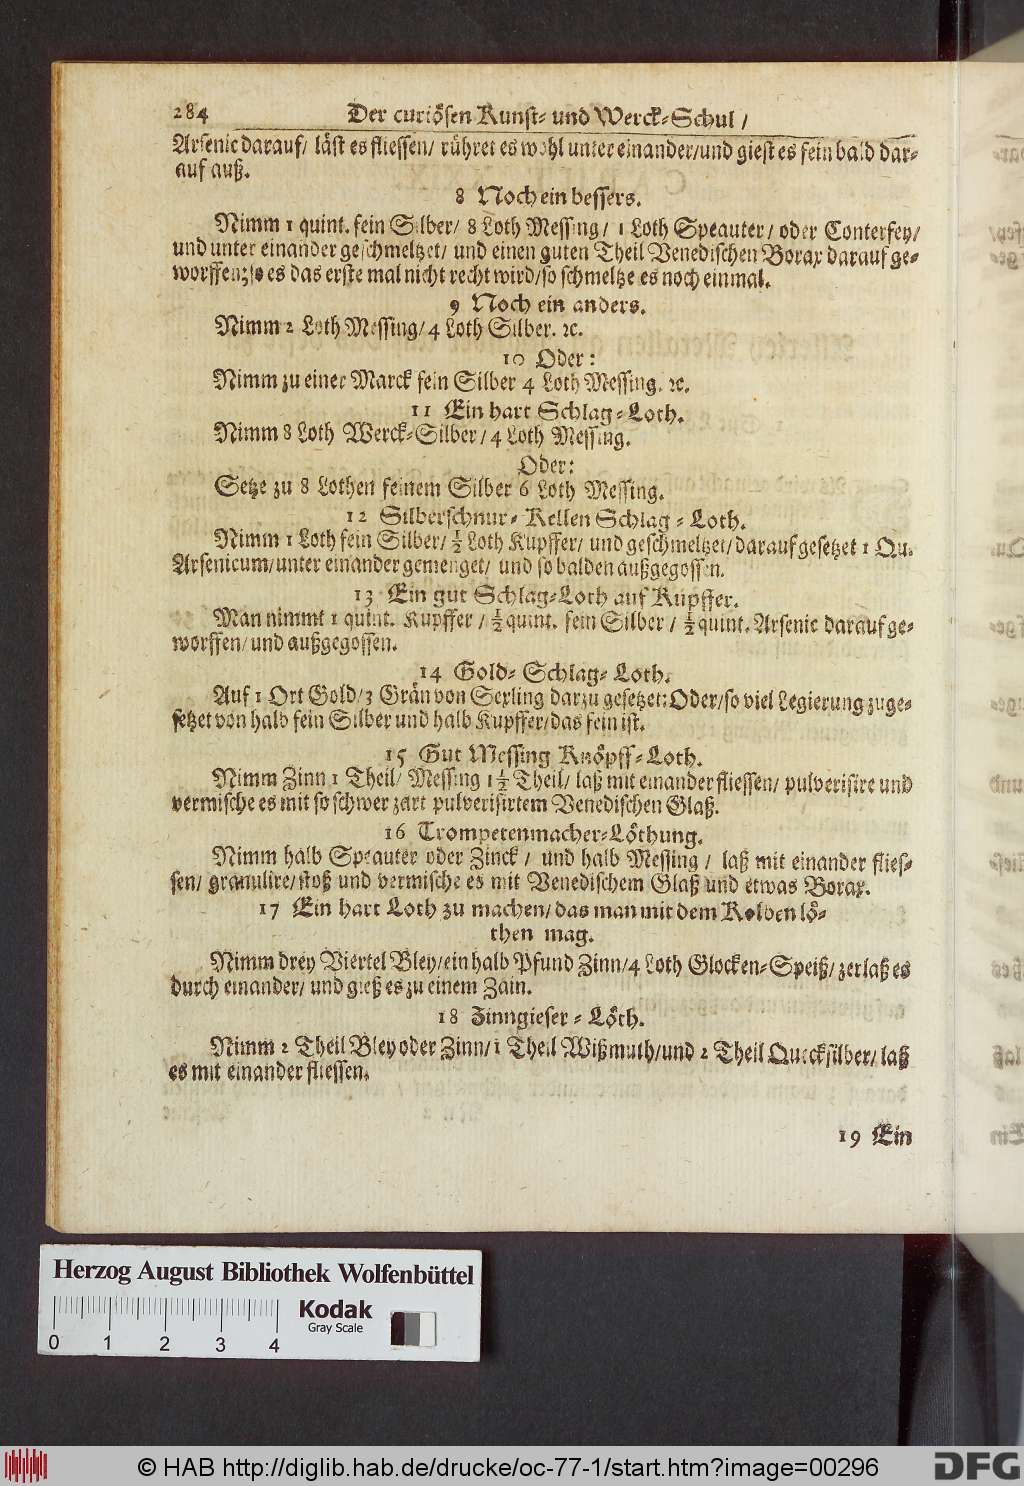 284 Der curiösen Kunst- und Werck-Schul /
Arsenic darauf/ läst es fliessen/ rühret es wohl unter einander/und giest es fein bald dar-
auf auß.
8 Noch ein bessers.
Nimm 1 quint. fein Silber/ 8 Loth Messing/ 1 Loth Speauter/ oder Conterfey/
und unter einander geschmeltzet/ und einen guten Theil Venedischen Borax darauf ge-
worffen; so es das erste mal nicht recht wird/so schmeltze es noch einmal.
9 Noch ein anders.
Nimm 2 Loth Messing/ 4 Loth Silber. ꝛc.
10 Oder:
Nimm zu einer Marck fein Silber 4 Loth Messing. ꝛc.
11 Ein hart Schlag-Loth.
Nimm 8 Loth Werck-Silber/ 4 Loth Messing.
Oder:
Setze zu 8 Lothen feinem Silber 6 Loth Messing.
12 Silberschnur-Kellen Schlag-Loth.
Nimm 1 Loth fein Silber/ ½ Loth Kupffer/ und geschmeltzet/ darauf gesetzet 1 Qu.
Arsenicum/unter einander gemenget/ und so balden außgegossen.
13 Ein gut Schlag-Loth auf Kupffer.
Man nimmt 1 quint. Kupffer / ½ quint. fein Silber / ½ quint. Arsenic darauf ge-
worffen/ und außgegossen.
14 Gold-Schlag-Loth.
Auf 1 Ort Gold/ 3 Grän von Serling darzu gesetzet: Oder/so viel Legierung zuge-
setzet von halb fein Silber und halb Kupffer/das fein ist.
15 Gut Messing Knöpff-Loth.
Nimm Zinn 1 Theil/ Messing 1 ½ Theil/ laß mit einander fliessen/ pulverisire und
vermische es mit so schwer zart pulverisirtem Venedischen Glaß.
16 Trompetenmacher-Löthung.
Nimm halb Speauter oder Zinck / und halb Messing / laß mit einander flies-
sen/ granulire/stoß und vermische es mit Venedischem Glaß und etwas Borax.
17 Ein hart Loth zu machen/ das man mit dem Kolben lö-
then mag.
Nimm drey Viertel Bley/ein halb Pfund Zinn/4 Loth Glocken-Speiß/ zerlaß es
durch einander/ und gieß es zu einem Zain.
18 Zinngieser-Löth.
Nimm 2 Theil Bley oder Zinn/1 Theil Wißmuth/und 2 Theil Quecksilber/ laß
es mit einander fliessen.
19 Ein
Herzog August Bibliothek Wolfenbüttel
Kodak
Gray Scale
0 1 2 3 4
© HAB http://diglib.hab.de/drucke/oc-77-1/start.htm?image=00296
DFG